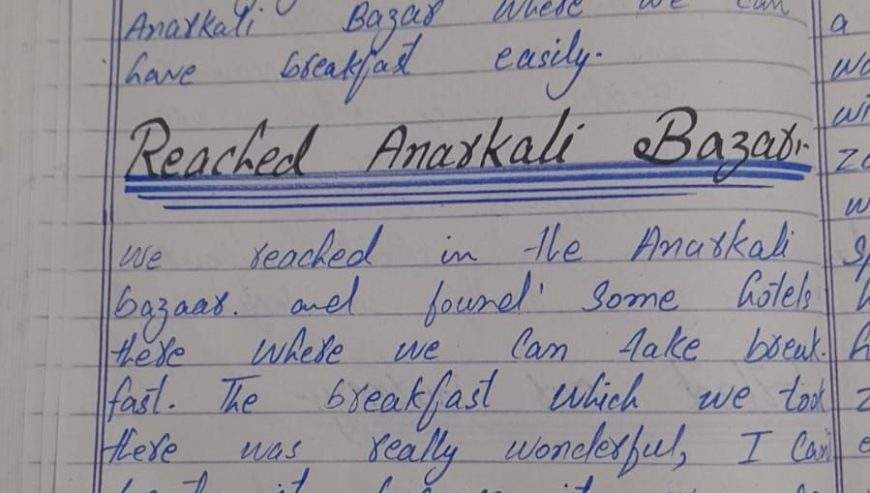 Anarkali Bazar where we can
have breakfast easily.
Reached Anarkali Bazar.
we reached in the Anarkali
bazaar. and found some hotels
there where we can take break.
fast. The breakfast which we took
there was really wonderful, I can